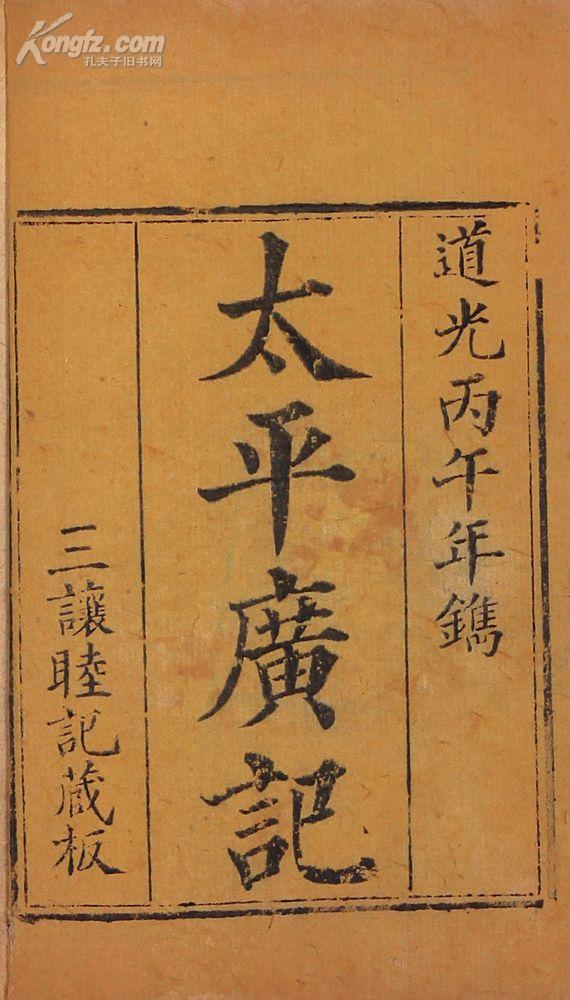 Kongfz.com
孔夫子旧书网
道光丙午年鐫
太平廣記
三讓睦記藏板